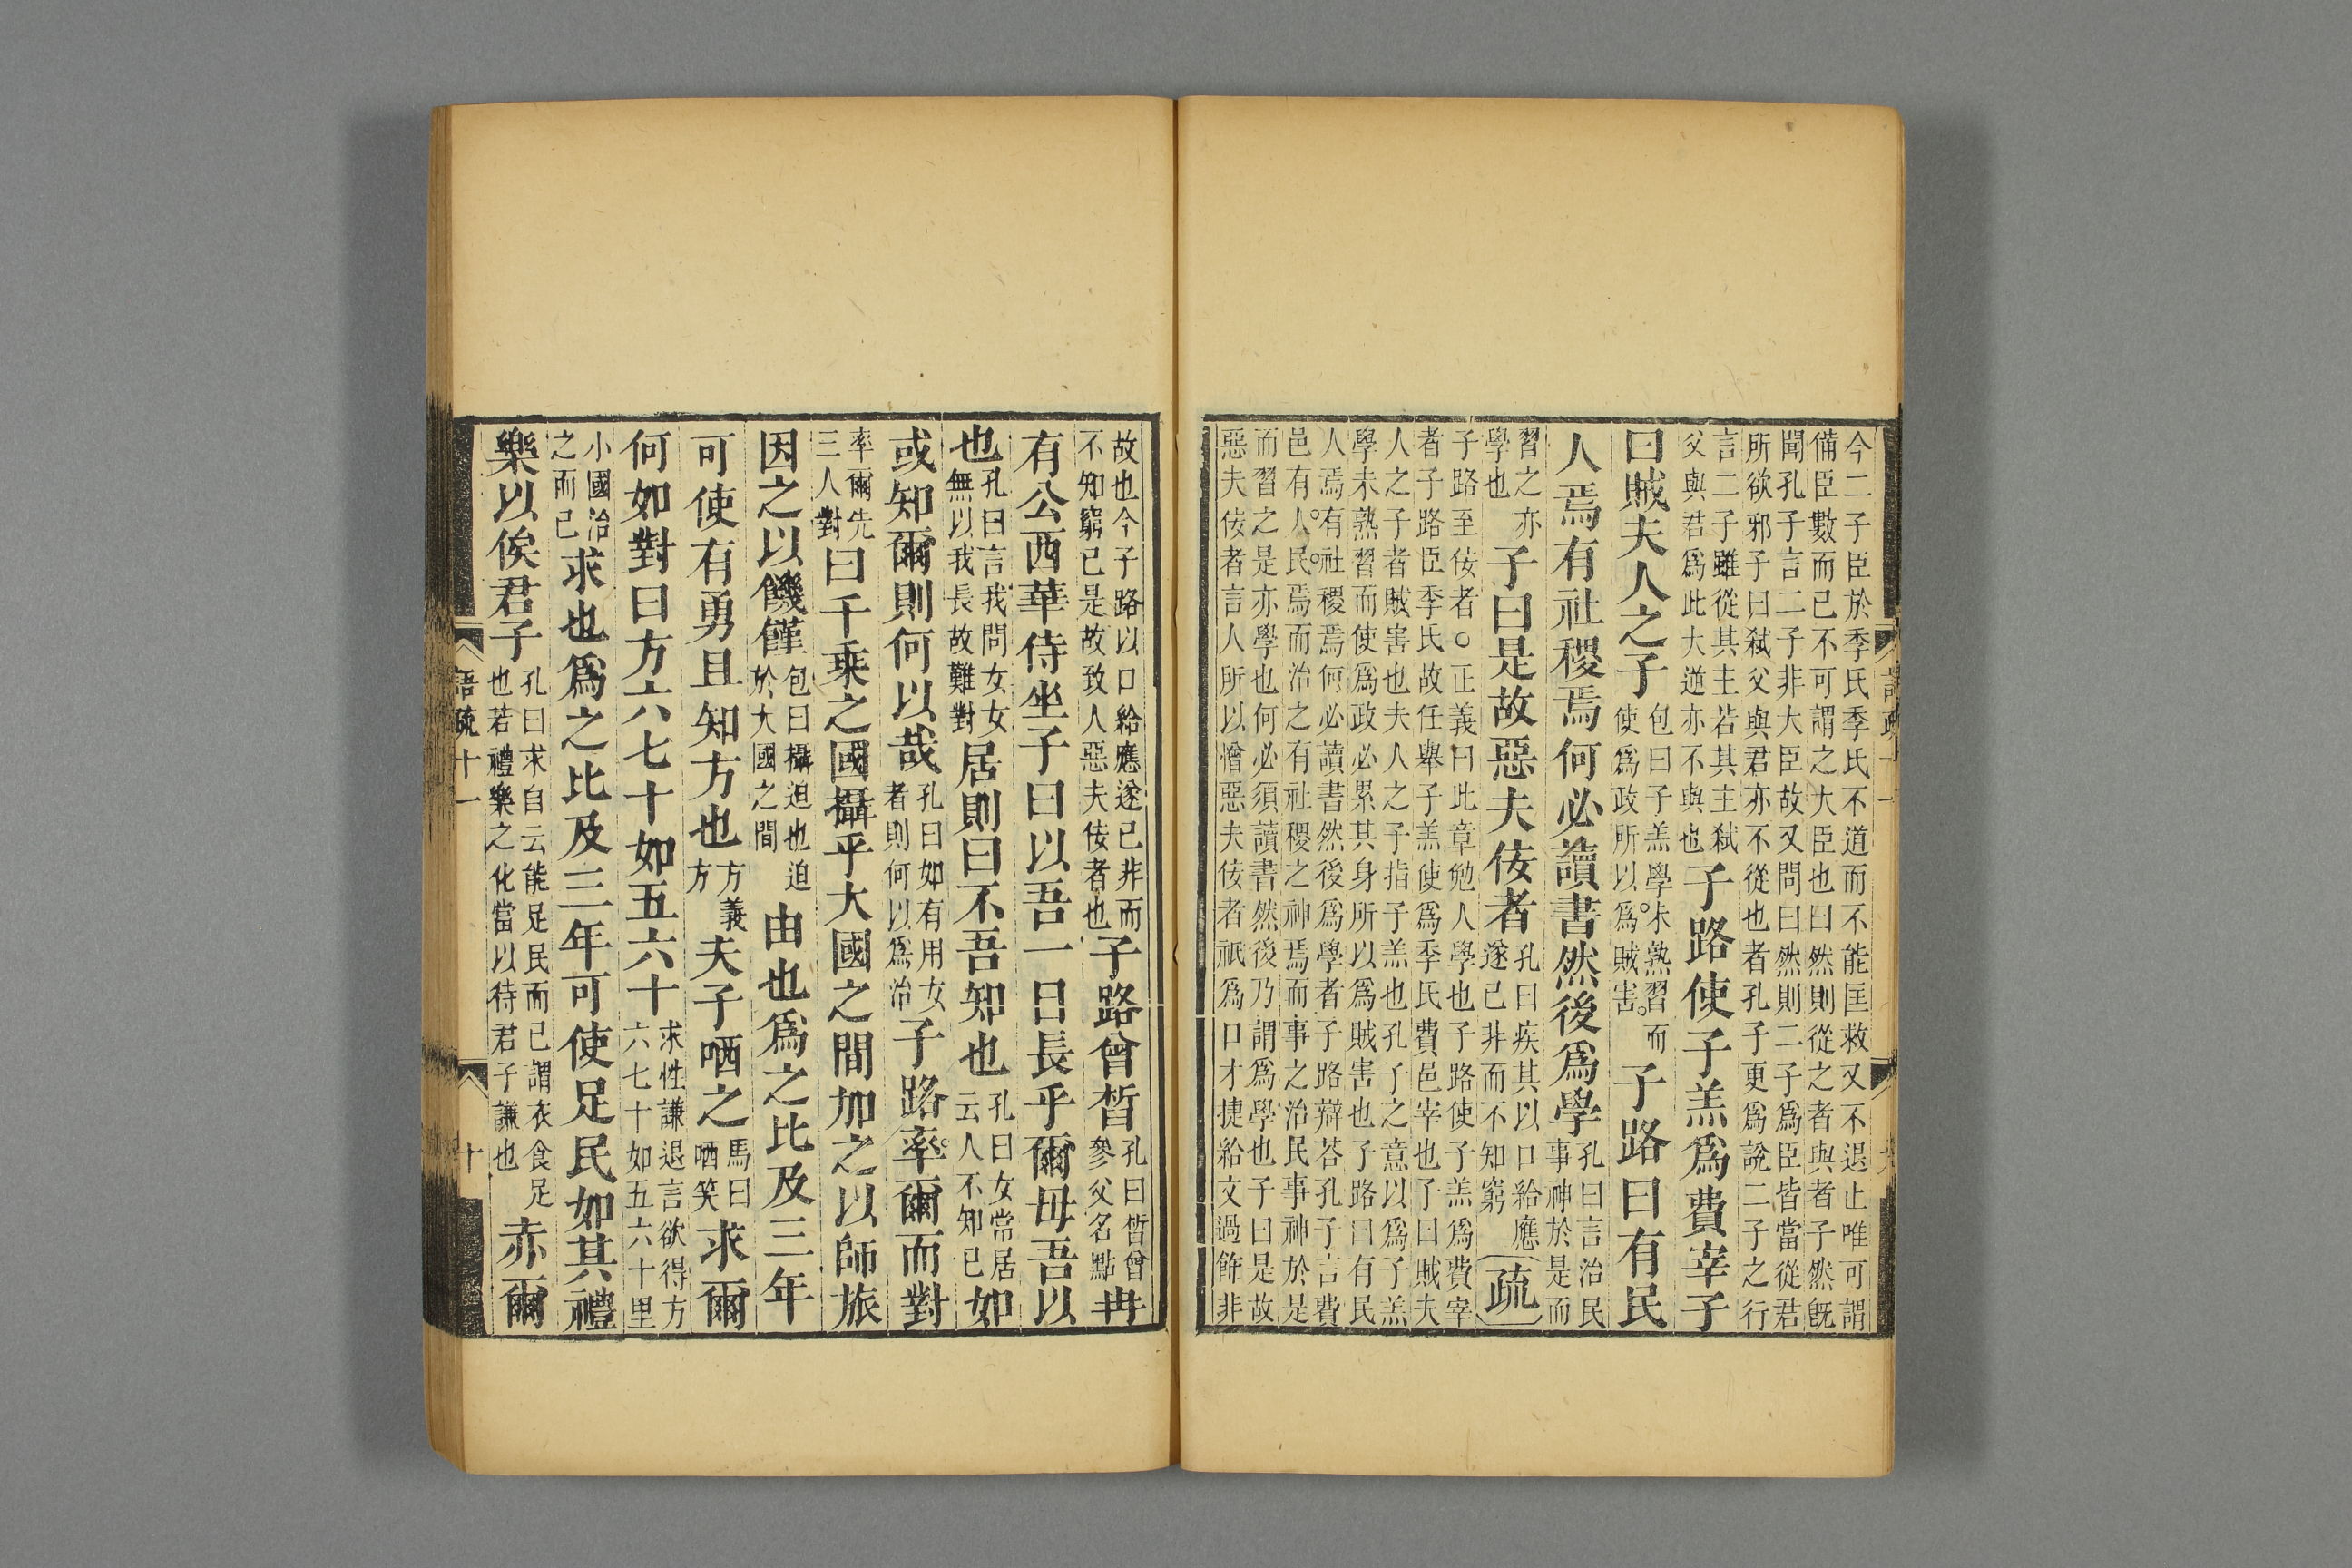 今二子臣於季氏季氏不道而不能匡救又不退止唯可謂
備臣數而已不可謂之大臣也曰然則從之者與者子然旣
聞孔子言二子非大臣故又問曰然則二子爲臣皆當從君
所欲邪子曰弑父與君亦不從也者孔子更爲說二子之行
言二子雖從其主若其主弑
父與君爲此大逆亦不與也
子路使子羔爲費宰子
曰賊夫人之子
包曰子羔學未熟習而
使爲政所以爲賊害
子路曰有民
人焉有社稷焉何必讀書然後爲學
孔曰言治民
事神於是而
習之亦
學也
子曰是故惡夫佞者
孔曰疾其以口給應
遂已非而不知窮
疏
子路至佞者○正義曰此章勉人學也子路使子羔爲費宰
者子路臣季氏故任舉子羔使爲季氏費邑宰也子曰賊夫
人之子者賊害也夫人之子指子羔也孔子之意以爲子羔
學未熟習而使爲政必累其身所以爲賊害也子路曰有民
人焉有社稷焉何必讀書然後爲學者子路辯荅孔子言費
邑有人民焉而治之有社稷之神焉而事之治民事神於是
而習之是亦學也何必須讀書然後乃謂爲學也子曰是故
惡夫佞者言人所以憎惡夫佞者祇爲口才捷給文過飾非
故也今子路以口給應遂已非而
不知窮已是故致人惡夫佞者也
子路曾晳
孔曰晳曾
參父名點
冉
有公西華侍坐子曰以吾一日長乎爾毋吾以
也
孔曰言我問女女
無以我長故難對
居則曰不吾知也
孔曰女常居
云人不知已
如
或知爾則何以哉
孔曰如有用女
者則何以爲治
子路率爾而對
率爾先
三人對
曰千乘之國攝乎大國之間加之以師旅
因之以饑饉
包曰攝迫也迫
於大國之間
由也爲之比及三年
可使有勇且知方也
方義
方
夫子哂之
馬曰
哂笑
求爾
何如對曰方六七十如五六十
求性謙退言欲得方
六七十如五六十里
小國治
之而已
求也爲之比及三年可使足民如其禮
樂以俟君子
孔曰求自云能足民而已謂衣食足
也若禮樂之化當以待君子謙也
赤爾
語疏十一
十